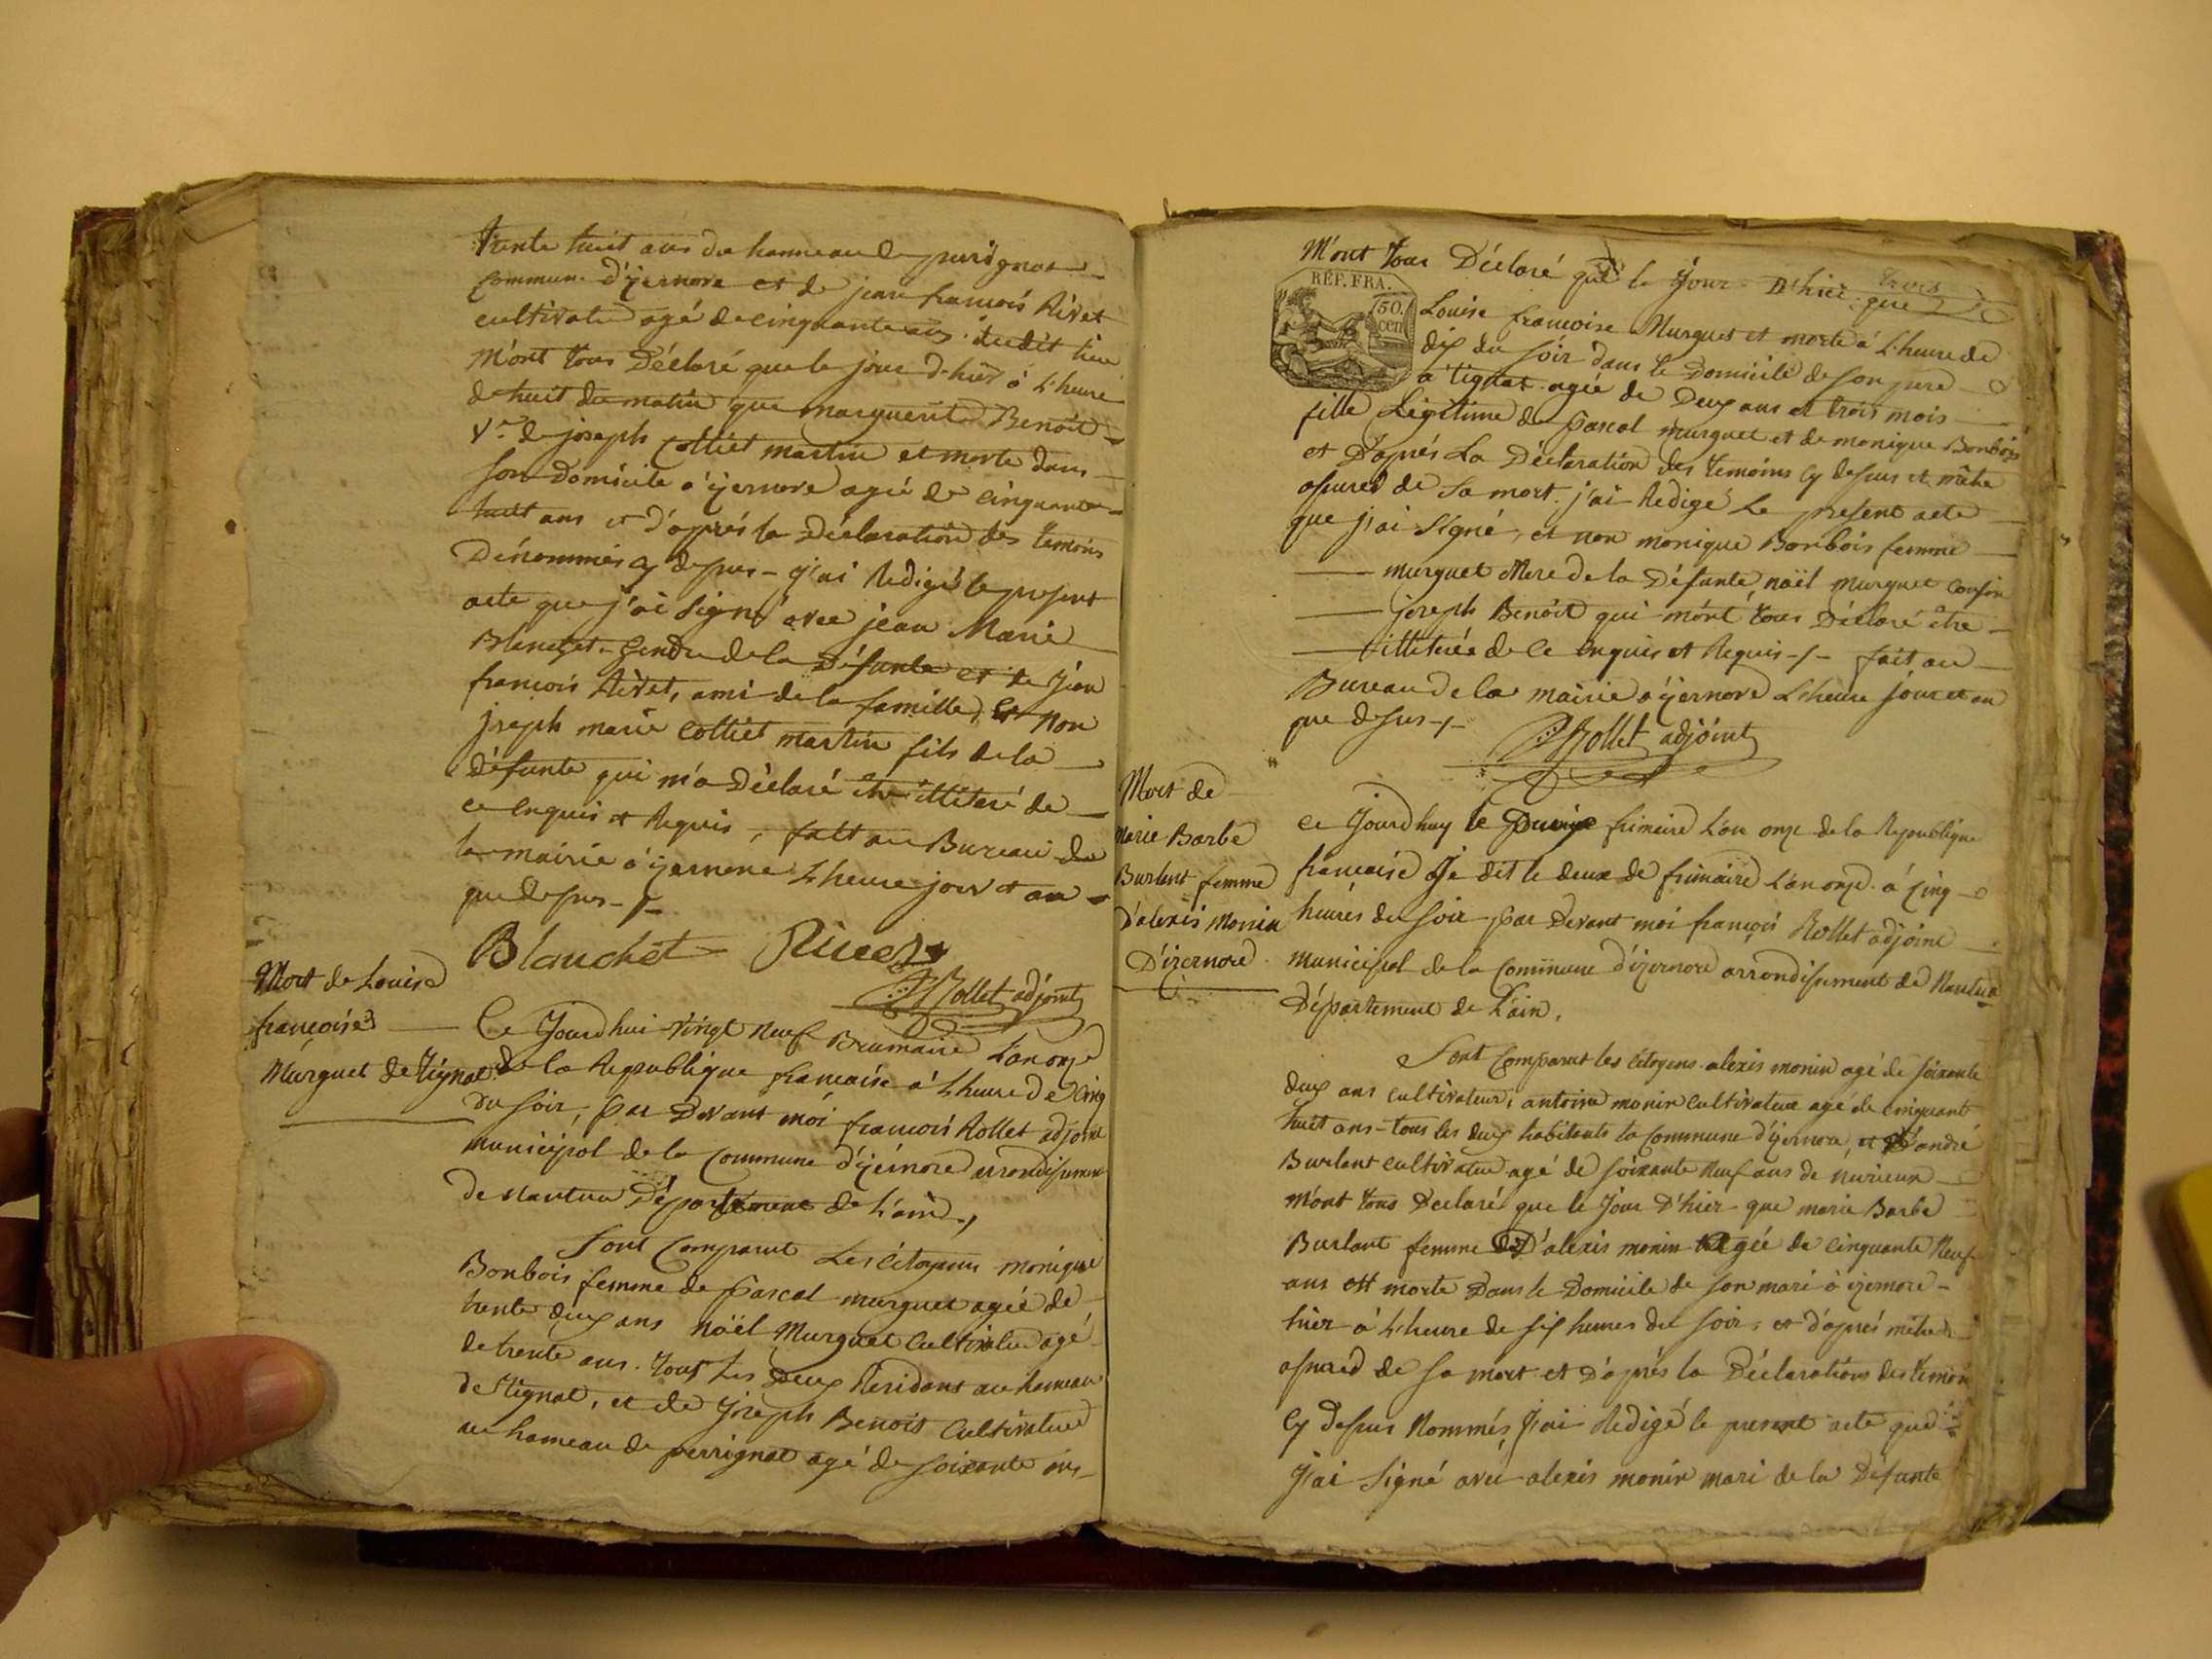 trente huit ans du hameau de perignat
commune d'yzernore et de jean francois Rivet
cultivateur agé de cinquante ans dudit lieu
M'ont tous Déclaré que le jour d'hier à L'heure
de huit du matin que marguerite Benoit
Vve de joseph Colliet martin et morte dans
son Domicile à yzernore agée de cinquante
huit ans et d'après la Déclaration des temoins
Dénommés cy dessus - j'ai Redigé le present
acte que j'ai signé avec jean Marie
Blanchet Gendre de la Défunte et de Jean
francois Rivet, ami de la famille, et Non
joseph marie Colliet martin fils de la
Défunte qui m'a Déclaré etre illiteré de
ce enquis et Requis, fait au Bureau de
la mairie à yzernore L'heure jour et an
que dessus -/-
Blanchet Rivet
Rollet adjoint
Mort de Louise
francoise
Murguet de tignat
Ce Jourd'hui vingt Neuf Brumaire L'an onze
de la Republique francaise à L'heure de cinq
du soir, par Devant moi francois Rollet adjoint
municipal de la Commune d'yzernore arrondissement
de Nantua Département de L'ain,
Sont Comparut Les Citoyens monique
Bonbois femme de Pascal murguet agée de
trente deux ans Noël Murguet Cultivateur agé
de trente ans. tous les Deux Residans au hameau
de tignat, et de Joseph Benoit Cultivateur
au hameau de perrignat agé de soixante ans
M'ont tous Déclaré que le Jour D'hier que
REP. FRA.
50.
cen
Louise francoise Murguet et morte à L'heure de
dix du soir dans le Domicile de son pere
à tignat agée de Deux ans et trois mois
fille Légitime de pascal murguet et de monique Bonbois
et D'après La Déclaration des temoins cy dessus et m'etre
assuré de Sa mort j'ai Redigé Le present acte
que j'ai signé, et non monique Bonbois femme
murguet Mere de la Défunte, noël murguet cousin
joseph Benoit qui m'ont tous Déclaré etre
illiterés de Ce enquis et Requis -/- fait au
Bureau de la mairie d'yzernore L'heure jour et an
que dessus -/-
Rollet adjoint
Mort de
Marie Barbe
Burlant femme
D'alexis Monin
D'izernore
Ce Jourd'huy le frimaire L'an onze de la Republique
francaise Je dit le deux de frimaire L'an onze à cinq
heures du soir par Devant moi françois Rollet adjoint
municipal de la Commune d'izernore arrondissement de Nantua
Département de L'ain.
Sont Comparut les Citoyens alexis monin agé de soixante
deux ans cultivateur, antoine monin Cultivateur agé de cinquante
huit ans - tous les deux habitants la Commune d'yzernore, et D'andré
Burlant cultivateur agé de soixante Neuf ans de nurieux
M'ont tous Déclaré que le Jour D'hier que marie Barbe
Burlant femme D'alexis monin agée de cinquante Neuf
ans est morte Dans le Domicile de son mari à izernore
hier à L'heure de six heures du soir, et d'après m'etre
assuré de sa mort et D'après la Déclarations des temoin
Cy dessus Nommés, J'ai Redigé le present acte que
J'ai Signé avec alexis monin mari de la Défunte